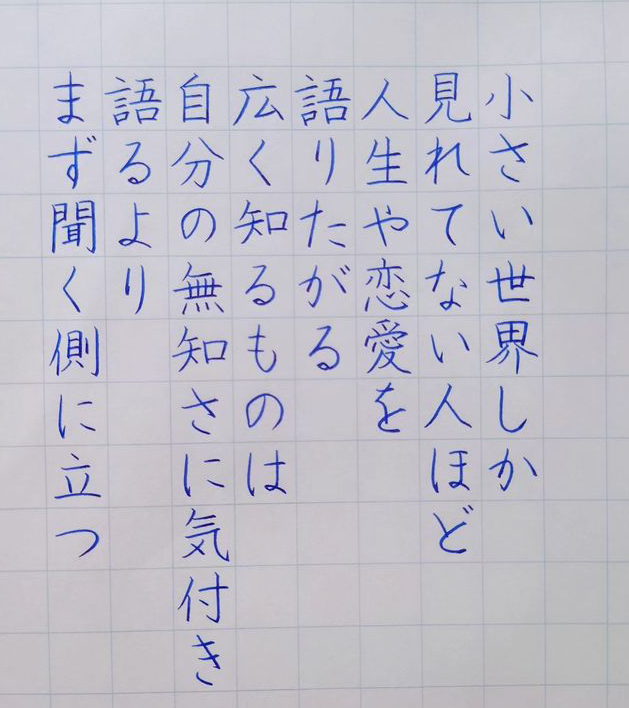 小さい世界しか
見れてない人ほど
人生や恋愛を
語りたがる
広く知るものは
自分の無知さに気付き
語るより
まず聞く側に立つ